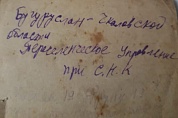 Бугуруслан - Чкаловской
области
Переселенческое Управление
при С.Н.К